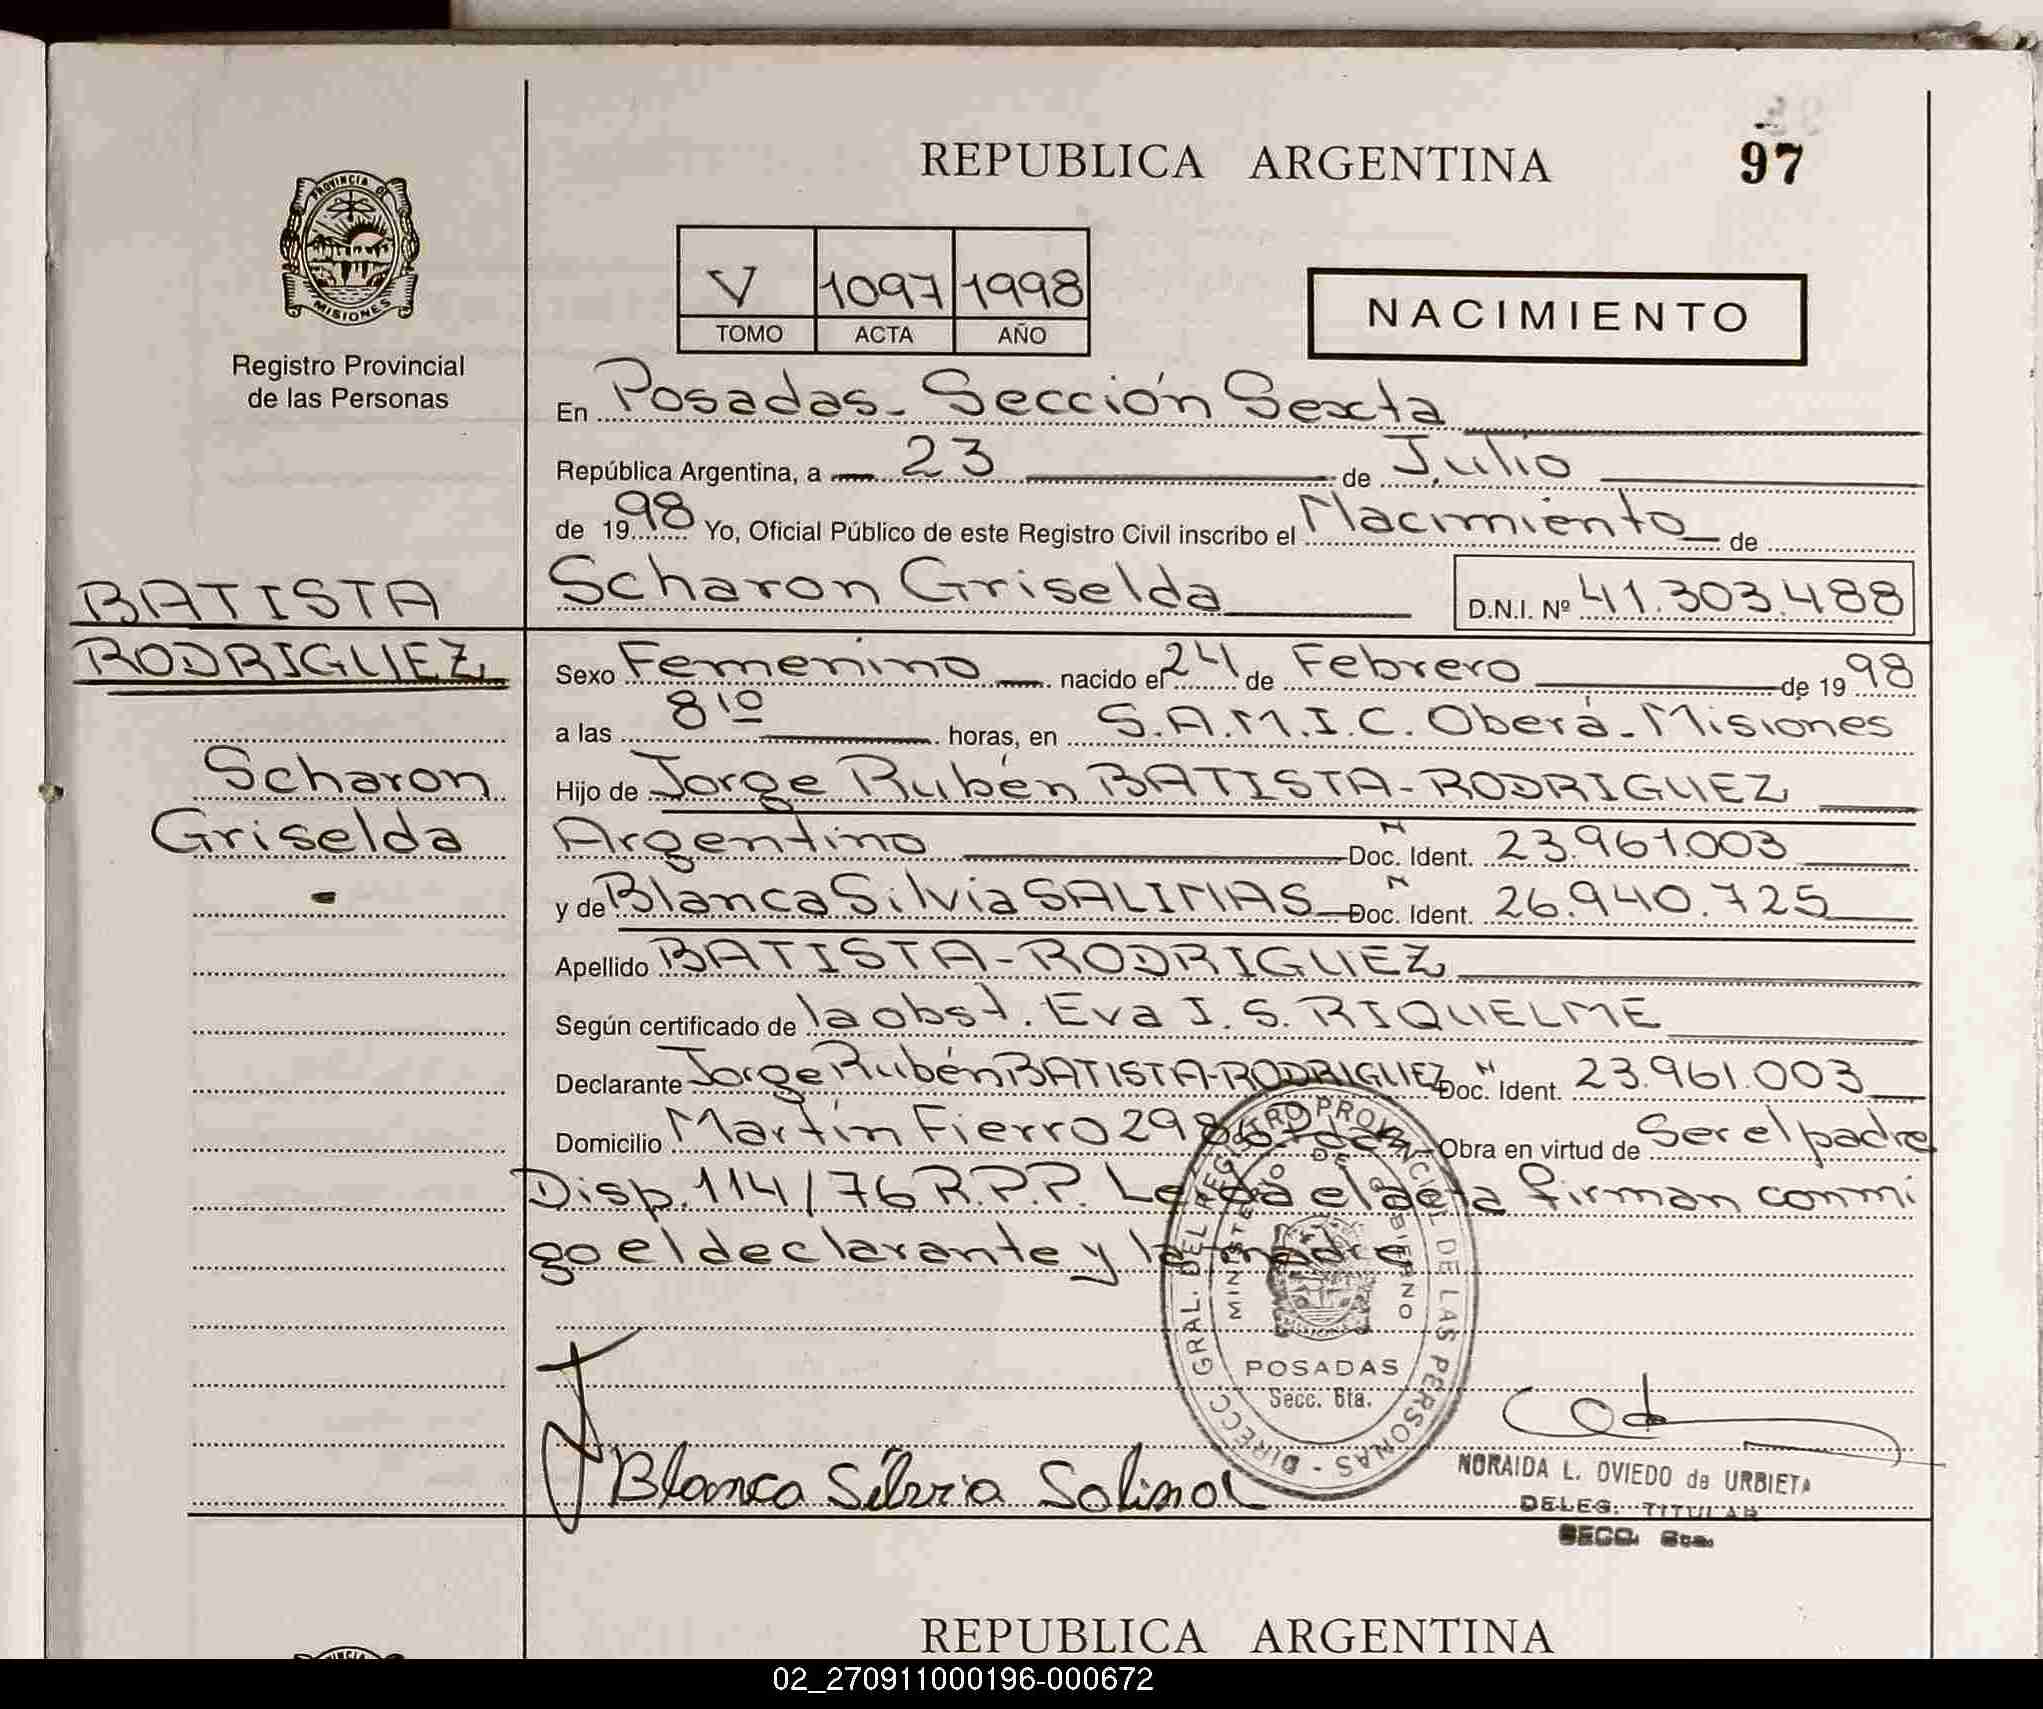 REPUBLICA ARGENTINA
97
PROVINCIA DE
MISIONES
Registro Provincial
de las Personas
V 1097 1998
TOMO ACTA AÑO
NACIMIENTO
En Posadas - Sección Sexta
República Argentina, a 23 de Julio
de 1998 Yo, Oficial Público de este Registro Civil inscribo el Nacimiento de
Scharon Griselda D.N.I. Nº 41.303.488
BATISTA
RODRIGUEZ
Scharon
Griselda
Sexo Femenino nacido el 24 de Febrero de 1998
a las 8 10 horas, en S.A.M.I.C. Oberá - Misiones
Hijo de Jorge Rubén BATISTA-RODRIGUEZ
Argentino Doc. Ident. N 23.961.003
y de Blanca Silvia SALINAS Doc. Ident. N 26.940.725
Apellido BATISTA-RODRIGUEZ
Según certificado de la obst. Eva I. S. RIQUELME
Declarante Jorge Rubén BATISTA-RODRIGUEZ Doc. Ident. N 23.961.003
Domicilio Martín Fierro 2986 Obra en virtud de Ser el padre
Disp. 114/76 R.P.P. Leída el acta firman conmi
go el declarante y la madre
DIRECC GRAL. DEL REGISTRO PROVINCIAL DE LAS PERSONAS
MINISTERIO DE GOBIERNO
POSADAS
Secc. 6ta.
Blanca Silvia Salinas
NORAIDA L. OVIEDO de URBIETA
DELEG. TITULAR
SECC. 6ta.
REPUBLICA ARGENTINA
02_270911000196-000672